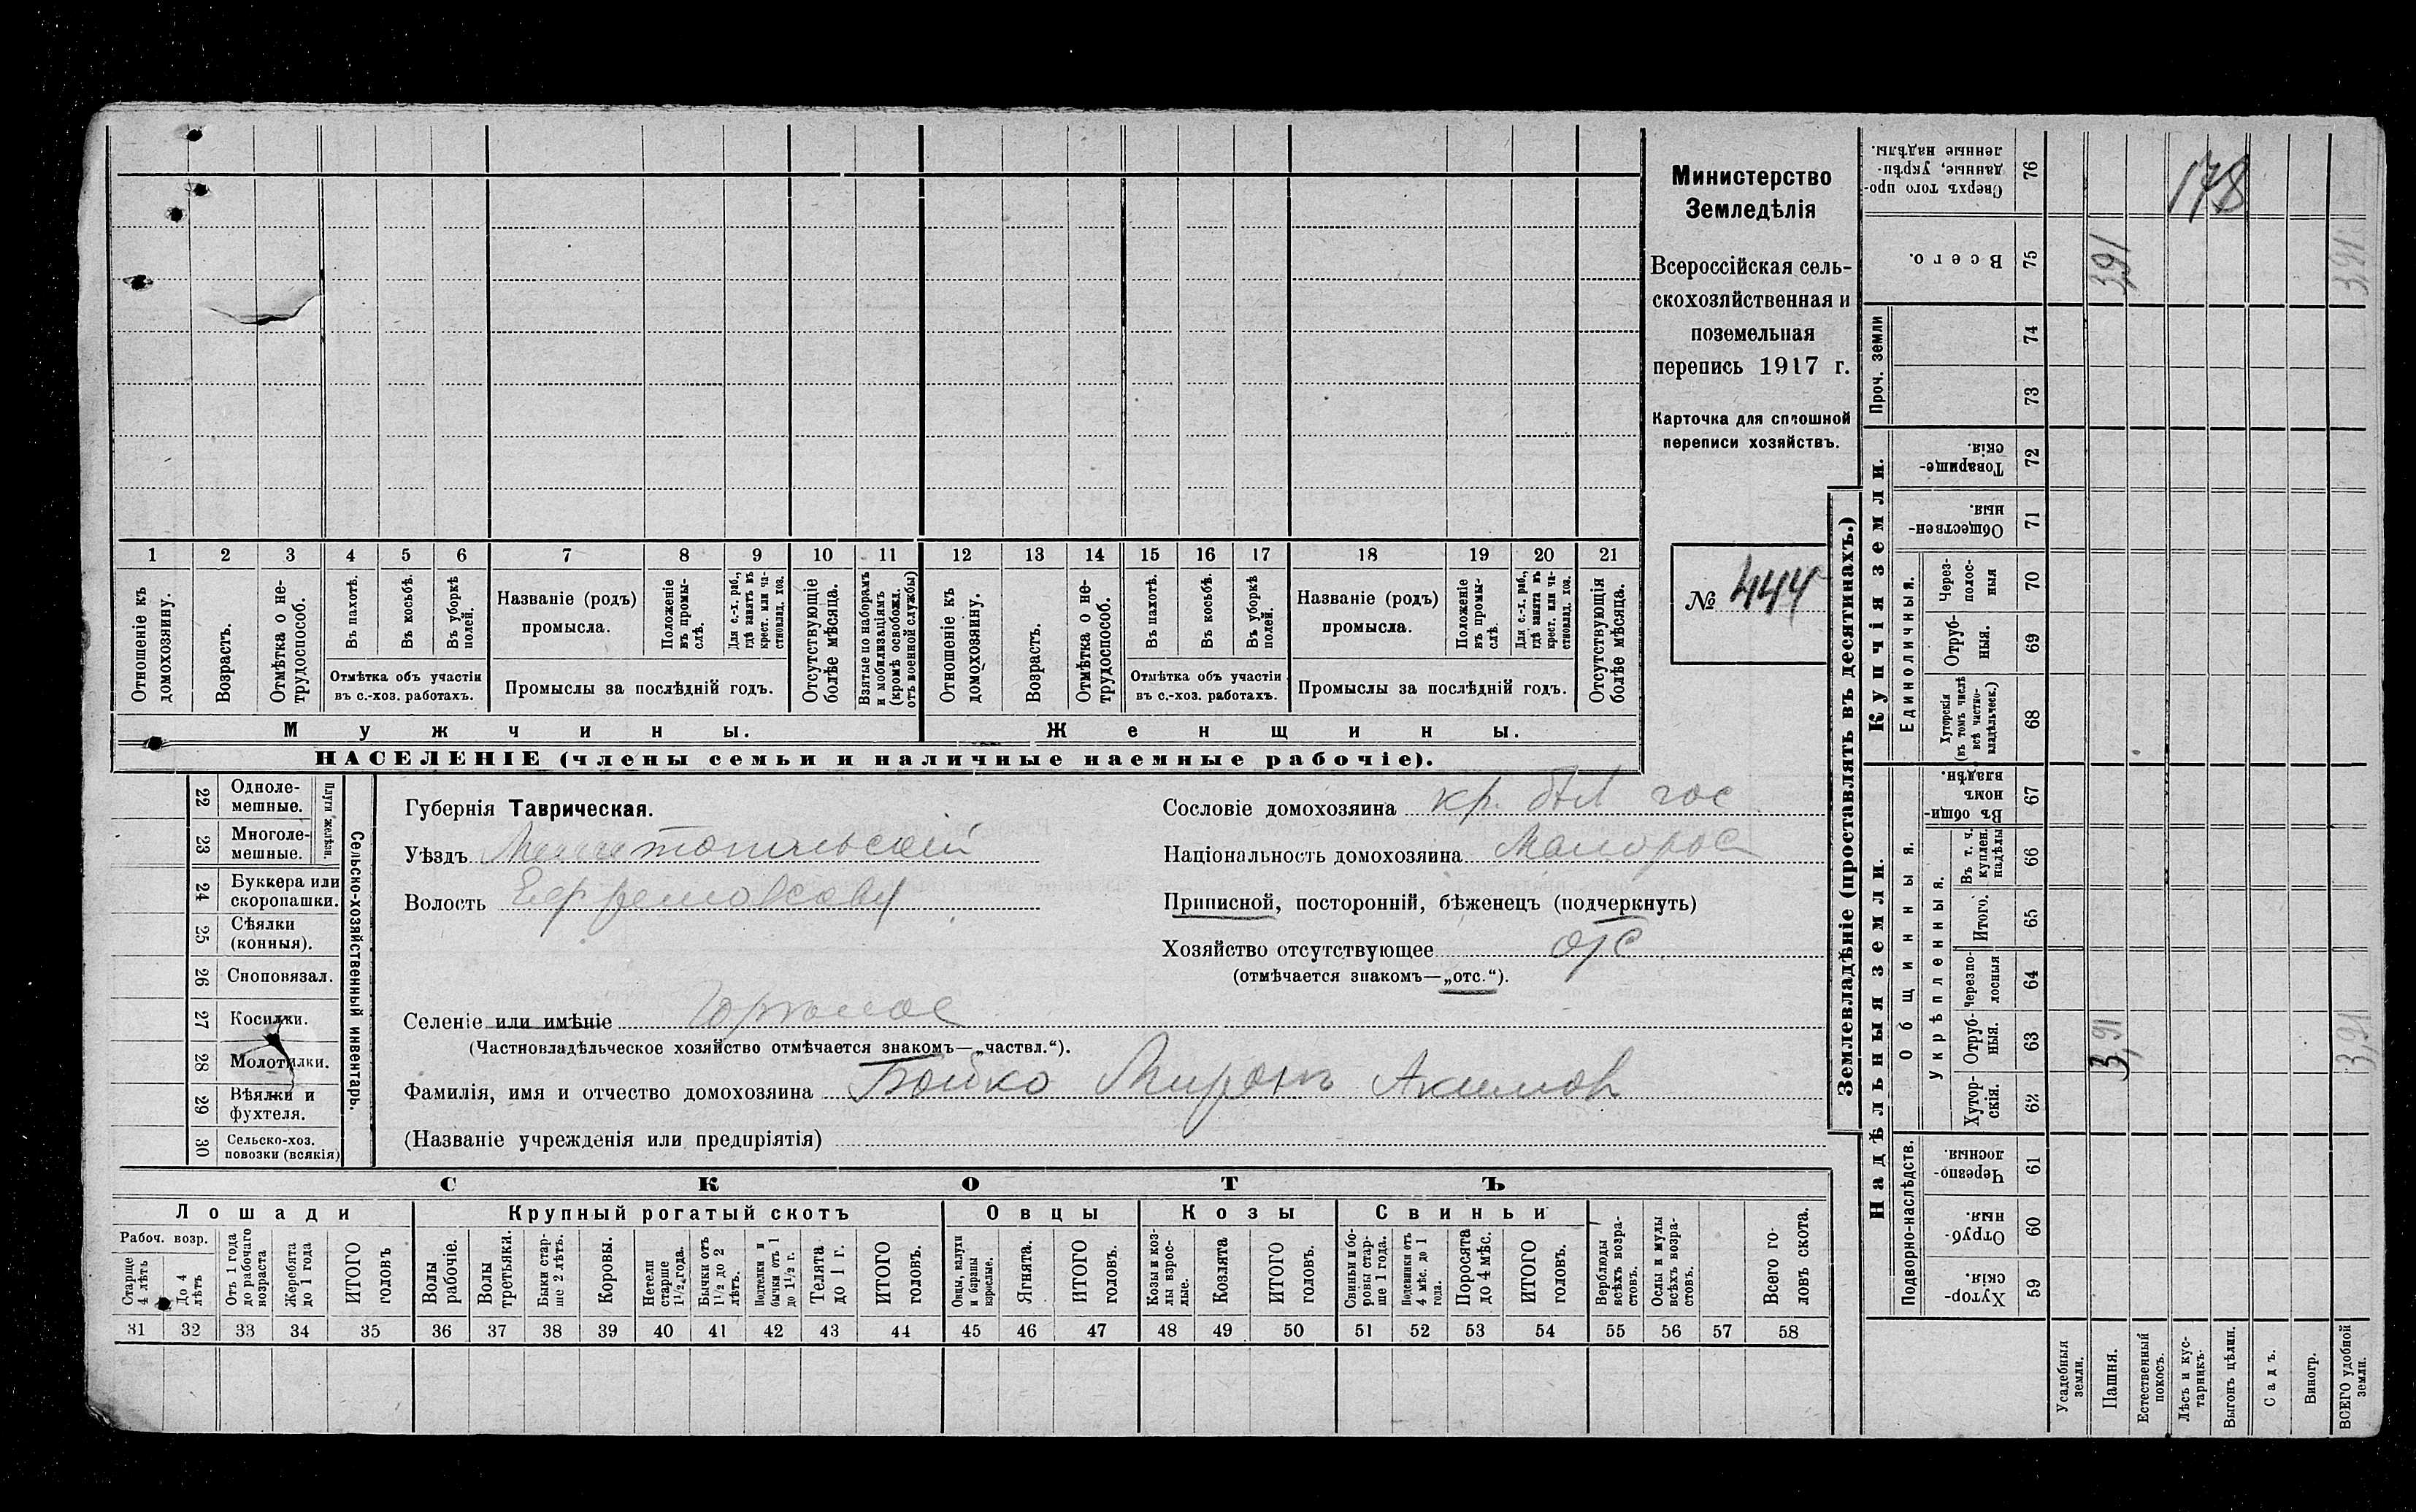 1 2 3 4 5 6 7 8 9 10 11 12 13 14 15 16 17 18 19 20 21
Отношеніе къ домохозяину.
Возрастъ.
Отмѣтка о не-
трудоспособ.
Въ пахотѣ.
Въ косьбѣ.
Въ уборкѣ
полей.
Отмѣтка объ участіи
въ с.-хоз. работахъ.
Названіе (родъ)
промысла.
Положеніе
въ промы-
слѣ.
Для с.-х. раб.,
гдѣ занятъ въ
крест. или ча-
стновлад. хоз.
Промыслы за послѣдній годъ.
Отсутствующіе
болѣе мѣсяца.
Взятые по наборамъ
и мобилизаціямъ
(кромѣ освобожд.
отъ военной службы)
Отношеніе къ
домохозяину.
Возрастъ.
Отмѣтка о не-
трудоспособ.
Въ пахотѣ.
Въ косьбѣ.
Въ уборкѣ
полей.
Отмѣтка объ участіи
въ с.-хоз. работахъ.
Названіе (родъ)
промысла.
Положеніе
въ промы-
слѣ.
Для с.-х. раб.,
гдѣ занята въ
крест. или ча-
стновлад. хоз.
Промыслы за послѣдній годъ.
Отсутствующія
болѣе мѣсяца.
Мужчины.
Женщины.
НАСЕЛЕНІЕ (члены семьи и наличные наемные рабочіе).
Министерство
Земледѣлія
Всероссійская сель-
скохозяйственная и
поземельная
перепись 1917 г.
Карточка для сплошной
переписи хозяйствъ.
№ 444
22 Одноле-
мешные.
23 Многоле-
мешные.
Плуги желѣзн.
24 Буккера или
скоропашки.
25 Сѣялки
(конныя).
26 Сноповязал.
27 Косилки.
28 Молотилки.
29 Вѣялки и
фухтеля.
30 Сельско-хоз.
повозки (всякія)
Сельско-хозяйственный инвентарь.
Губернія Таврическая.
Уѣздъ Мелитопольскій
Волость
Сословіе домохозяина кр. был гос
Національность домохозяина Малорос
Приписной, посторонній, бѣженецъ (подчеркнуть)
Хозяйство отсутствующее отс
(отмѣчается знакомъ—„отс.“).
Селеніе или имѣніе
(Частновладѣльческое хозяйство отмѣчается знакомъ—„частвл.“).
Фамилія, имя и отчество домохозяина Бойко Миронъ Акимов
(Названіе учрежденія или предпріятія)
СКОТЪ
Лошади
Крупный рогатый скотъ
Овцы
Козы
Свиньи
Рабоч. возр.
Старше
4 лѣтъ
До 4
лѣтъ
Отъ 1 года
до рабочаго
возраста
Жеребята
до 1 года
ИТОГО
головъ
Волы
рабочіе.
Волы
третьяки.
Быки стар-
ше 2 лѣтъ.
Коровы.
Нетели
старше
1½ года.
Бычки отъ
1½ до 2
лѣтъ.
Подтелки и
бычки отъ 1
до 1½ г.
Телята
до 1 г.
ИТОГО
головъ.
Овцы, валухи
и бараны
взрослые.
Ягнята.
ИТОГО
головъ.
Козы и коз-
лы взрос-
лые.
Козлята
ИТОГО
головъ.
Свиньи и бо-
ровы стар-
ше 1 года.
Подсвинки отъ
4 мѣс. до 1
года.
Поросята
до 4 мѣс.
ИТОГО
головъ.
Верблюды
всѣхъ возра-
стовъ.
Ослы и мулы
всѣхъ возра-
стовъ.
Всего го-
ловъ скота.
31 32 33 34 35 36 37 38 39 40 41 42 43 44 45 46 47 48 49 50 51 52 53 54 55 56 57 58
Землевладѣніе (проставлять въ десятинахъ.)
Надѣльныя земли.
Купчія земли.
Проч. земли
Подворно-наслѣдств.
Общинныя.
Укрѣпленныя.
Единоличныя.
Хутор-
скія. 59
Отруб-
ныя. 60
Черезпо-
лосныя. 61
Хутор-
скія. 62
Отруб-
ныя. 63
Черезпо-
лосныя 64
Итого. 65
Въ т. ч.
куплен.
надѣлы 66
Въ общи
номъ
владѣн. 67
Хуторскія
(въ томъ числѣ
всѣ частно-
владѣльческ.) 68
Отруб-
ныя. 69
Через-
полос-
ныя 70
Обществен-
ныя. 71
Товарище-
скія 72
73
74
Всего. 75
Сверхъ того про-
данные, укрѣп-
ленные надѣлы. 76
Усадебныя
земли.
Пашня.
3,91
3,91
Естественный
покосъ.
Лѣсъ и кус-
тарникъ.
178
Выгонъ цѣлин.
Садъ.
Виногр.
ВСЕГО удобной
земли.
3,91
3,91